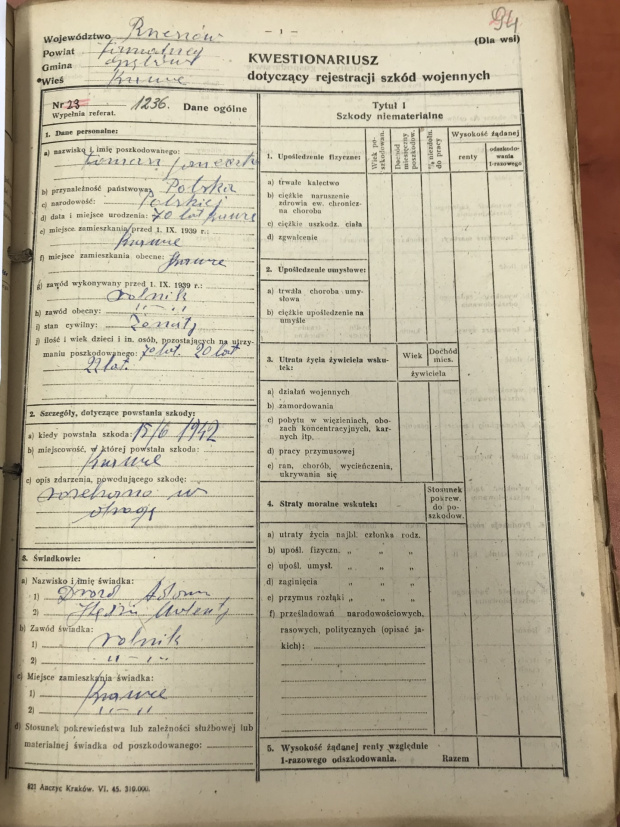 94
— 1 —
(Dla wsi)
Województwo Rzeszów
Powiat
Gmina
Wieś Krawce
KWESTIONARIUSZ
dotyczący rejestracji szkód wojennych
Nr 23 1236. Dane ogólne
Wypełnia referat.
1. Dane personalne:
a) nazwisko i imię poszkodowanego:
b) przynależność państwowa: Polska
c) narodowość: Polskiej
d) data i miejsce urodzenia: 70 lat Krawce
e) miejsce zamieszkania przed 1. IX. 1939 r.:
Krawce
f) miejsce zamieszkania obecne: Krawce
g) zawód wykonywany przed 1. IX. 1939 r.:
rolnik
h) zawód obecny: " — "
i) stan cywilny: Żonaty
j) ilość i wiek dzieci i in. osób, pozostających na utrzy-
maniu poszkodowanego: 70 lat. 20 lat
22 lat.
2. Szczegóły, dotyczące powstania szkody:
a) kiedy powstała szkoda: 15/6 1942
b) miejscowość, w której powstała szkoda:
Krawce
c) opis zdarzenia, powodującego szkodę:
w
3. Świadkowie:
a) Nazwisko i imię świadka:
1)
2)
b) Zawód świadka:
1) rolnik
2) " — "
c) Miejsce zamieszkania świadka:
1) Krawce
2) " — "
d) Stosunek pokrewieństwa lub zależności służbowej lub
materialnej świadka od poszkodowanego:
821 Anczyc Kraków. VI. 45. 210.000.
Tytuł I
Szkody niematerialne
1. Upośledzenie fizyczne:
Wiek poszkodowan.
Dochód miesięczny poszkodow.
% niezdoln. do pracy
Wysokość żądanej
renty
odszkodowania 1-razowego
a) trwałe kalectwo
b) ciężkie naruszenie
zdrowia ew. chronicz-
na choroba
c) ciężkie uszkodz. ciała
d) zgwałcenie
2. Upośledzenie umysłowe:
a) trwała choroba umy-
słowa
b) ciężkie upośledzenie na
umyśle
3. Utrata życia żywiciela wsku-
tek:
Wiek
Dochód
mies.
żywiciela
a) działań wojennych
b) zamordowania
c) pobytu w więzieniach, obo-
zach koncentracyjnych, kar-
nych itp.
d) pracy przymusowej
e) ran, chorób, wycieńczenia,
ukrywania się
4. Straty moralne wskutek:
Stosunek
pokrew.
do po-
szkodow.
a) utraty życia najbl. członka rodz.
b) upośl. fizyczn. " "  "
c) upośl. umysł. " " "
d) zaginięcia " " "
e) przymus rozłąki " " "
f) prześladowań narodowościowych,
rasowych, politycznych (opisać ja-
kich):
5. Wysokość żądanej renty względnie
1-razowego odszkodowania. Razem